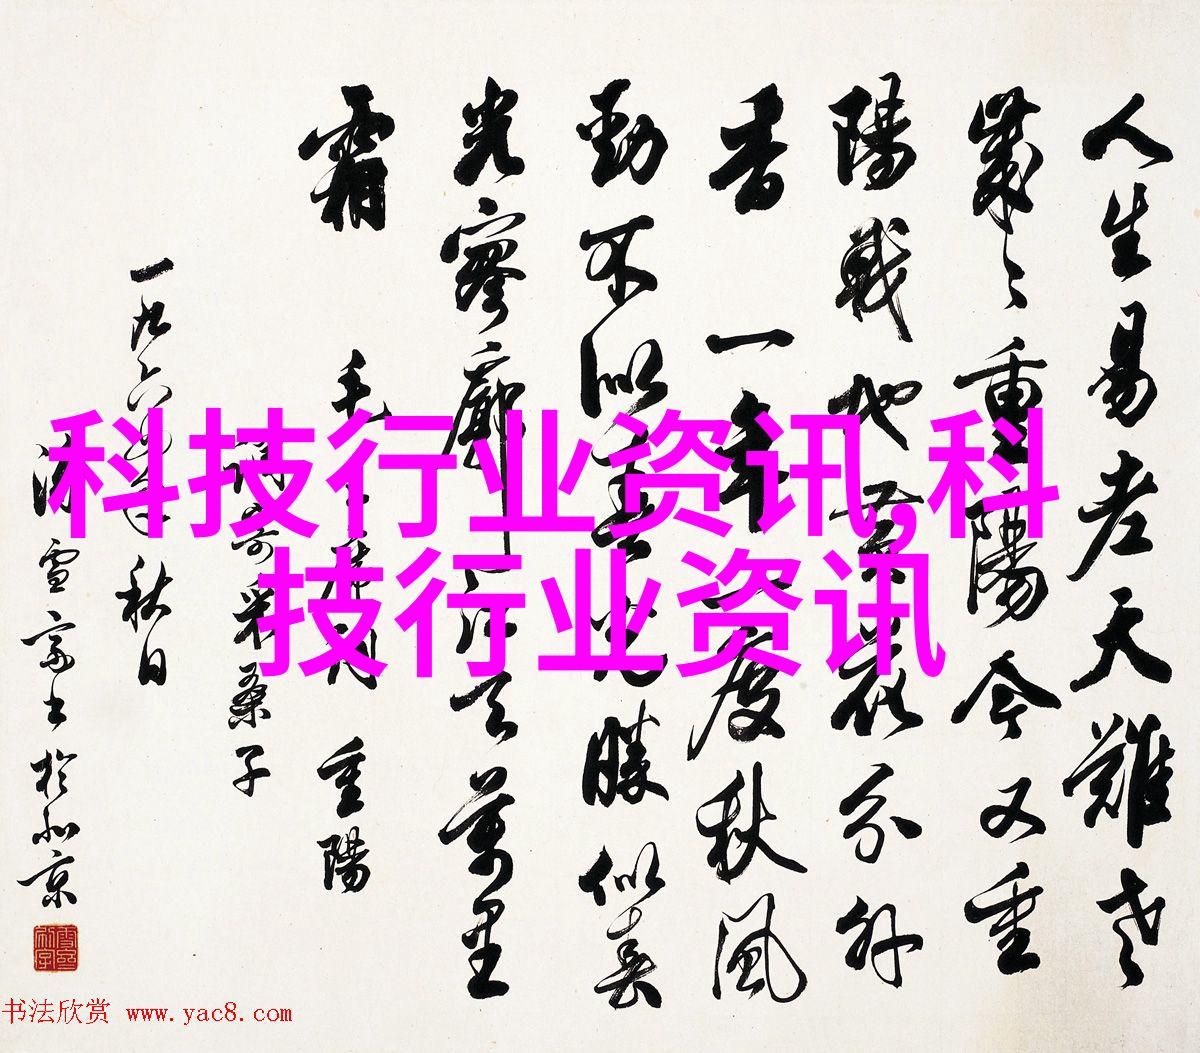 人生易老天難老
歲々重陽今又重
陽戰地黄花分外
香 一年一度秋風
勁不似春光勝似春
光寥廓江天萬里
霜 毛主席詞 重陽
調寄采桑子
一九六年秋日
溥雪齋書於北京
科技行业资讯,科
技行业资讯
书法欣赏 www.yac8.com